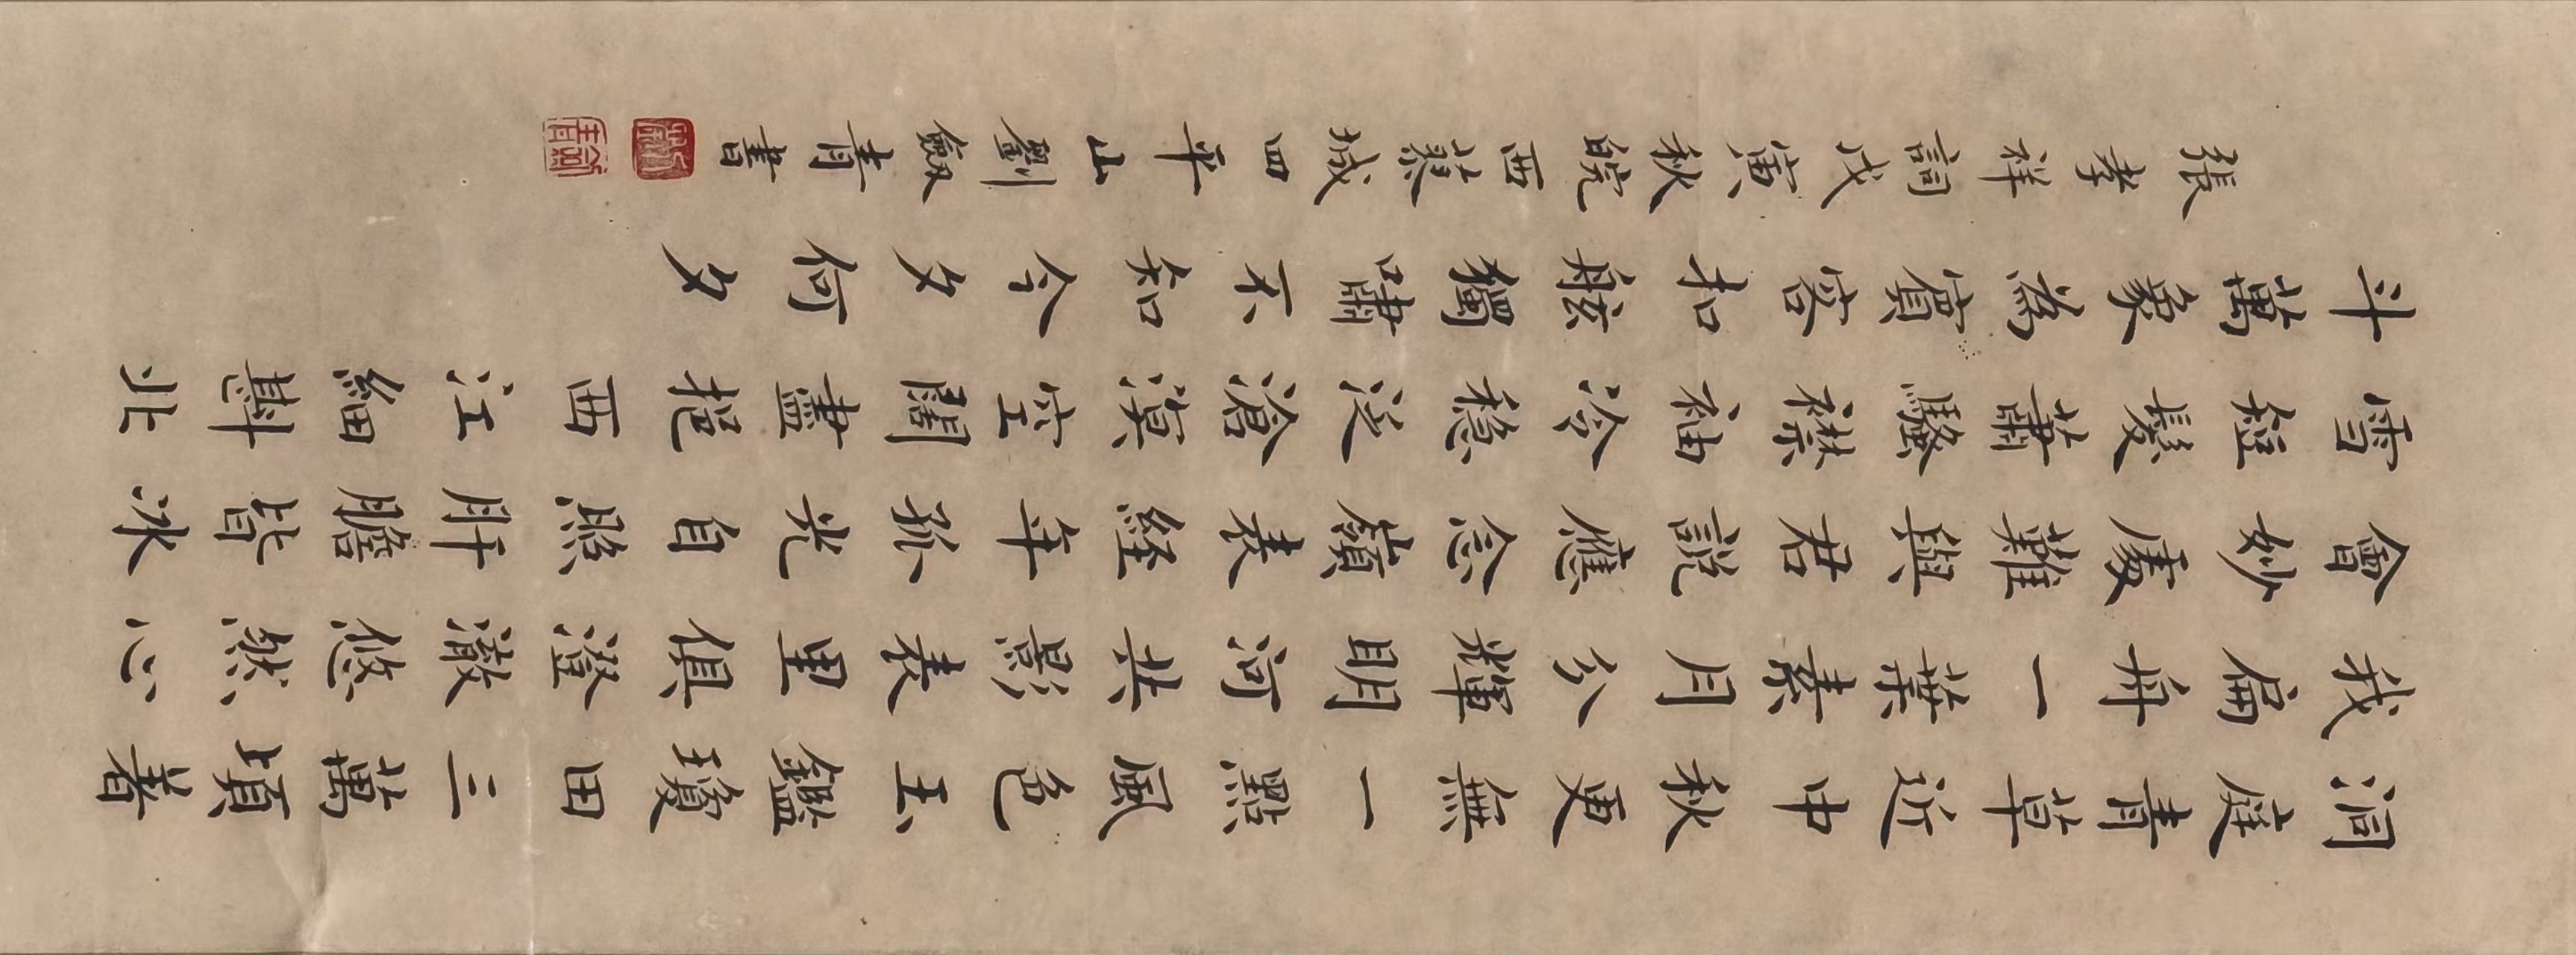 洞庭青草近中秋更無一點風色玉鑑瓊田三萬頃著
我扁舟一葉素月分輝明河共影表里俱澄澈悠然心
會妙處難與君說應念嶺表經年孤光自照肝膽皆冰
雪短髮蕭騷襟袖冷穩泛滄溟空闊盡挹西江細斟北
斗萬象為賓客扣舷獨嘯不知今夕何夕
張孝祥詞戊寅秋皖西蓼城四平山劉劍青書